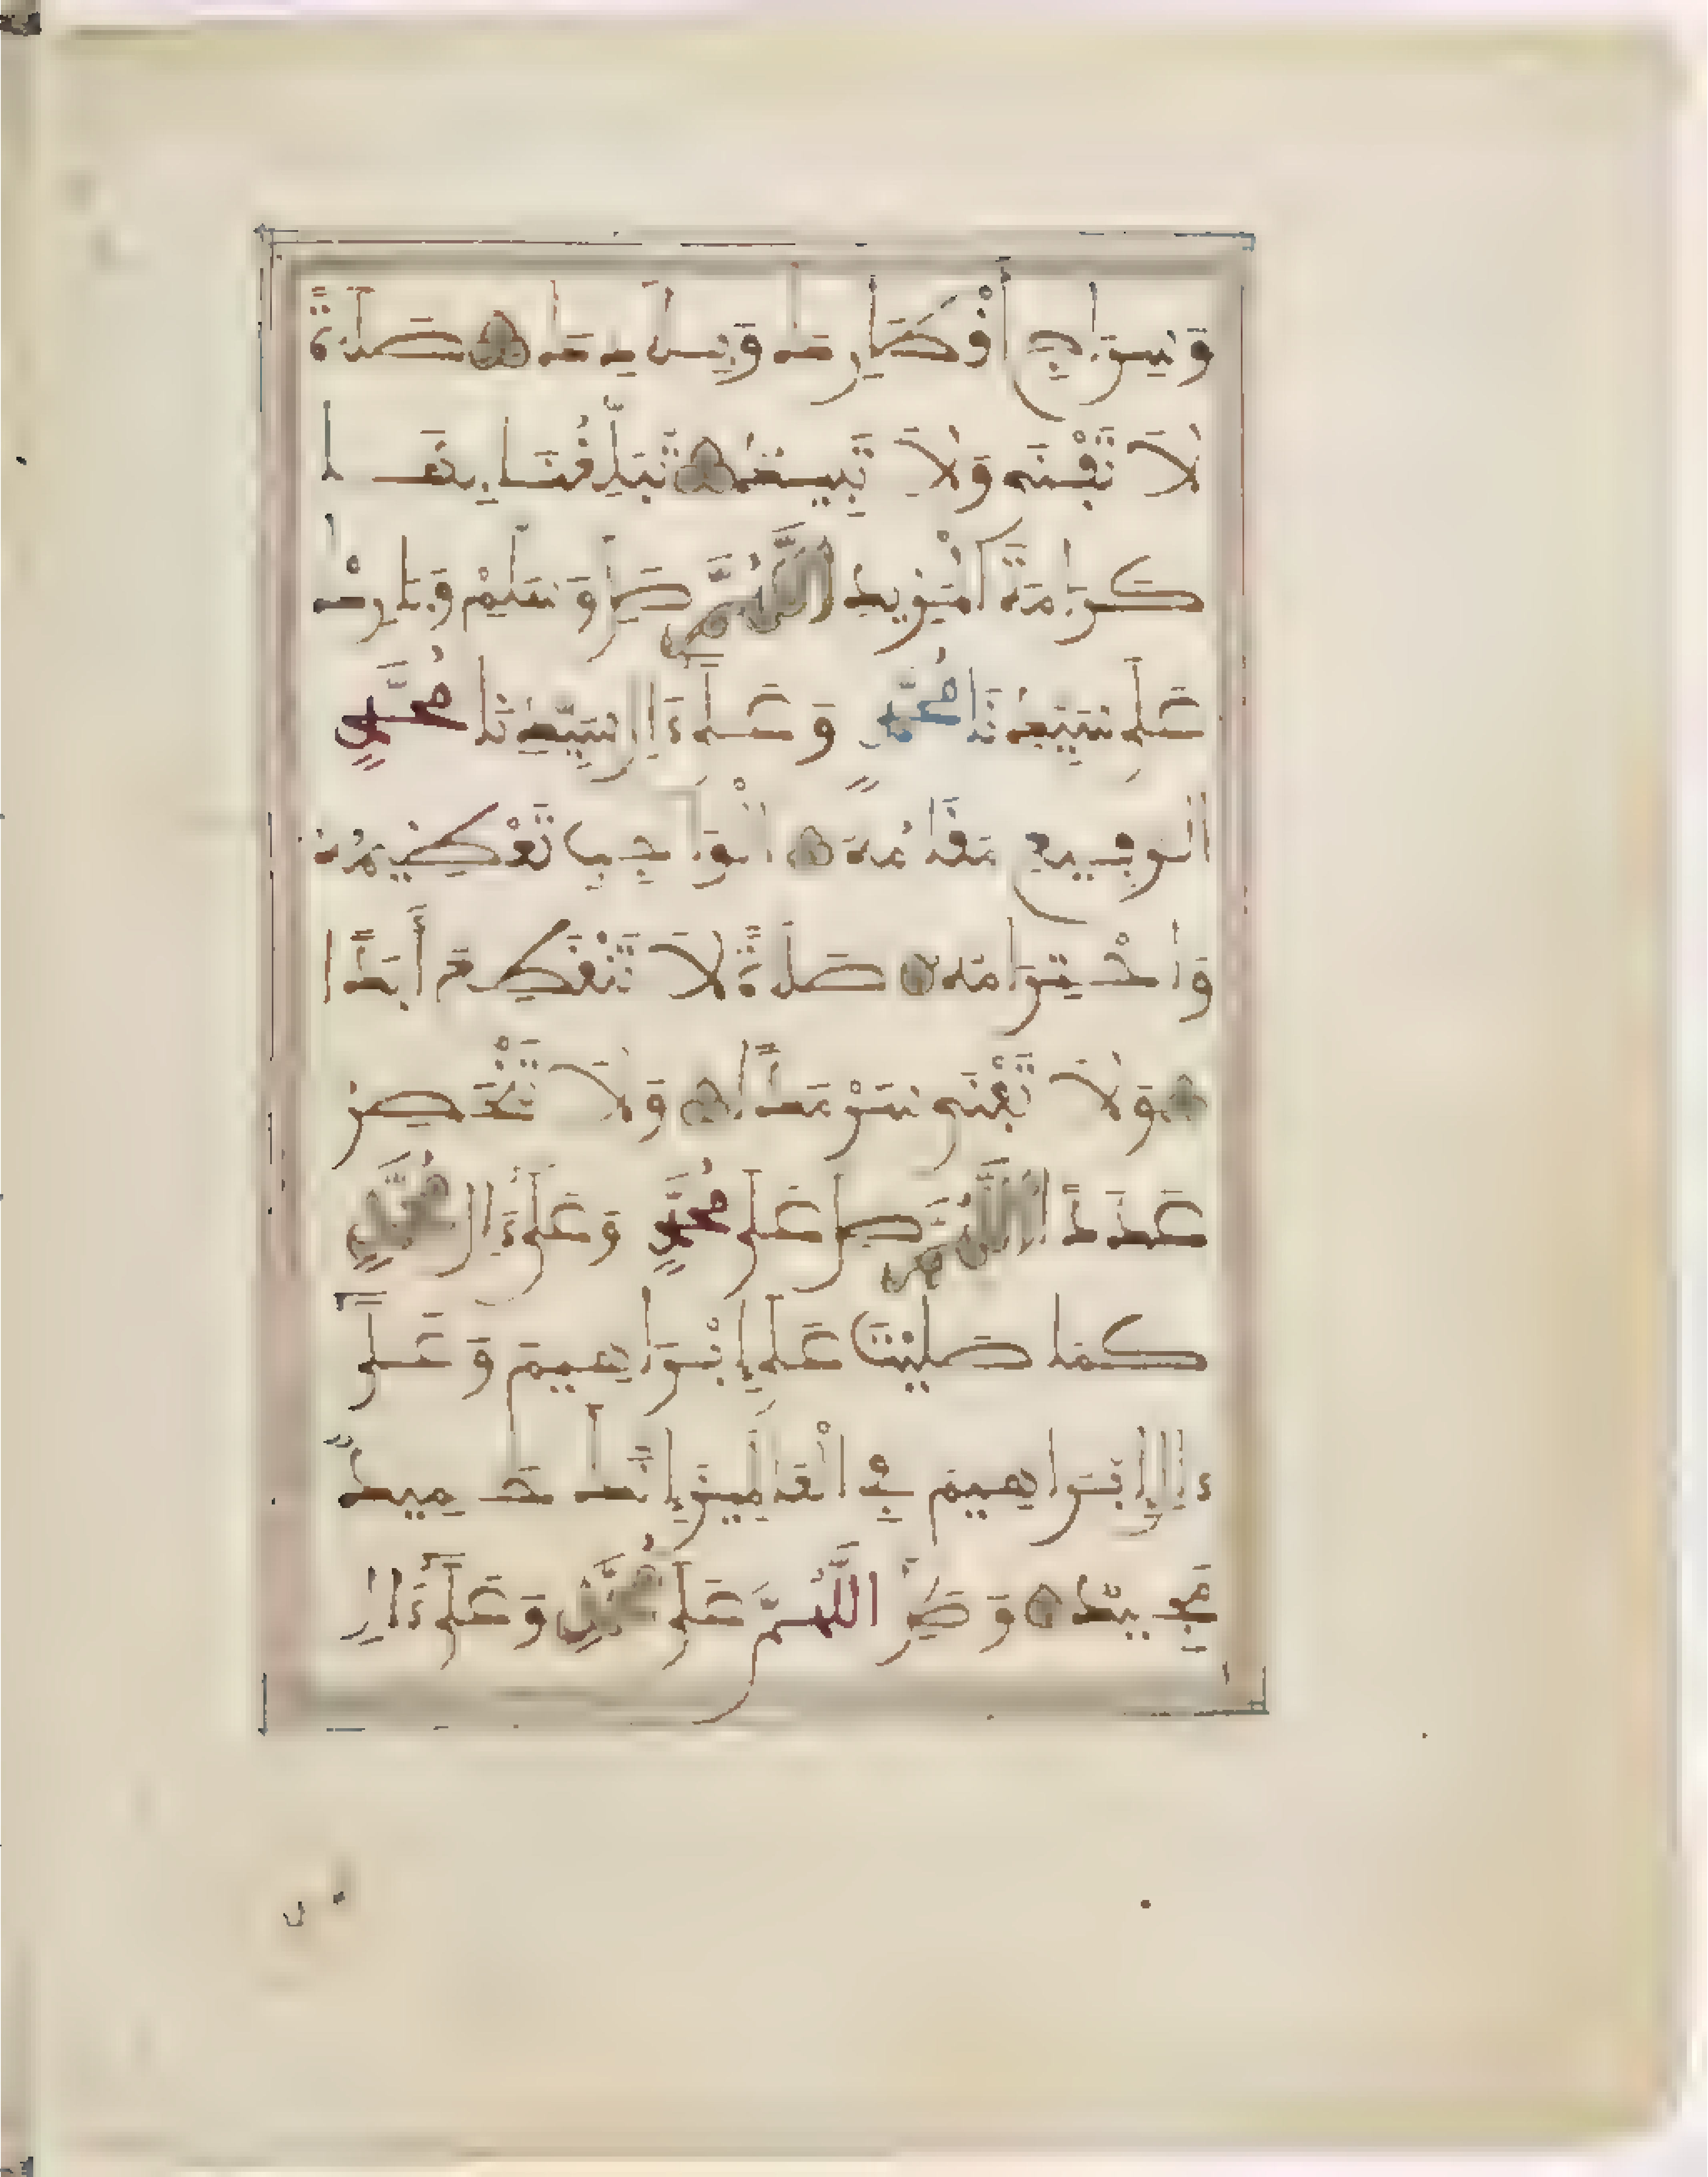 وَسِرَاجِ أَقْطَارِهَا وَبِسَاطِهَا صَلَاةً
لَا تَفْنَى وَلَا تَبِيدُ تُبَلِّغُنَا بِهَا
كَرَامَةَ الْمَزِيدِ اللَّهُمَّ صَلِّ وَسَلِّمْ وَبَارِكْ
عَلَى سَيِّدِنَا مُحَمَّدٍ وَعَلَى ءَالِ سَيِّدِنَا مُحَمَّدٍ
الرَّفِيعِ مَقَامُهُ الْوَاجِبِ تَعْظِيمُهُ
وَاحْتِرَامُهُ صَلَاةً لَا تَنْقَطِعُ أَبَدًا
وَلَا تَفْنَى سَرْمَدًا وَلَا تَنْحَصِرُ
عَدَدًا اللَّهُمَّ صَلِّ عَلَى مُحَمَّدٍ وَعَلَى ءَالِ مُحَمَّدٍ
كَمَا صَلَّيْتَ عَلَى إِبْرَاهِيمَ وَعَلَى
ءَالِ إِبْرَاهِيمَ فِي الْعَالَمِينَ إِنَّكَ حَمِيدٌ
مَجِيدٌ وَصَلِّ اللَّهُمَّ عَلَى مُحَمَّدٍ وَعَلَى ءَالِ